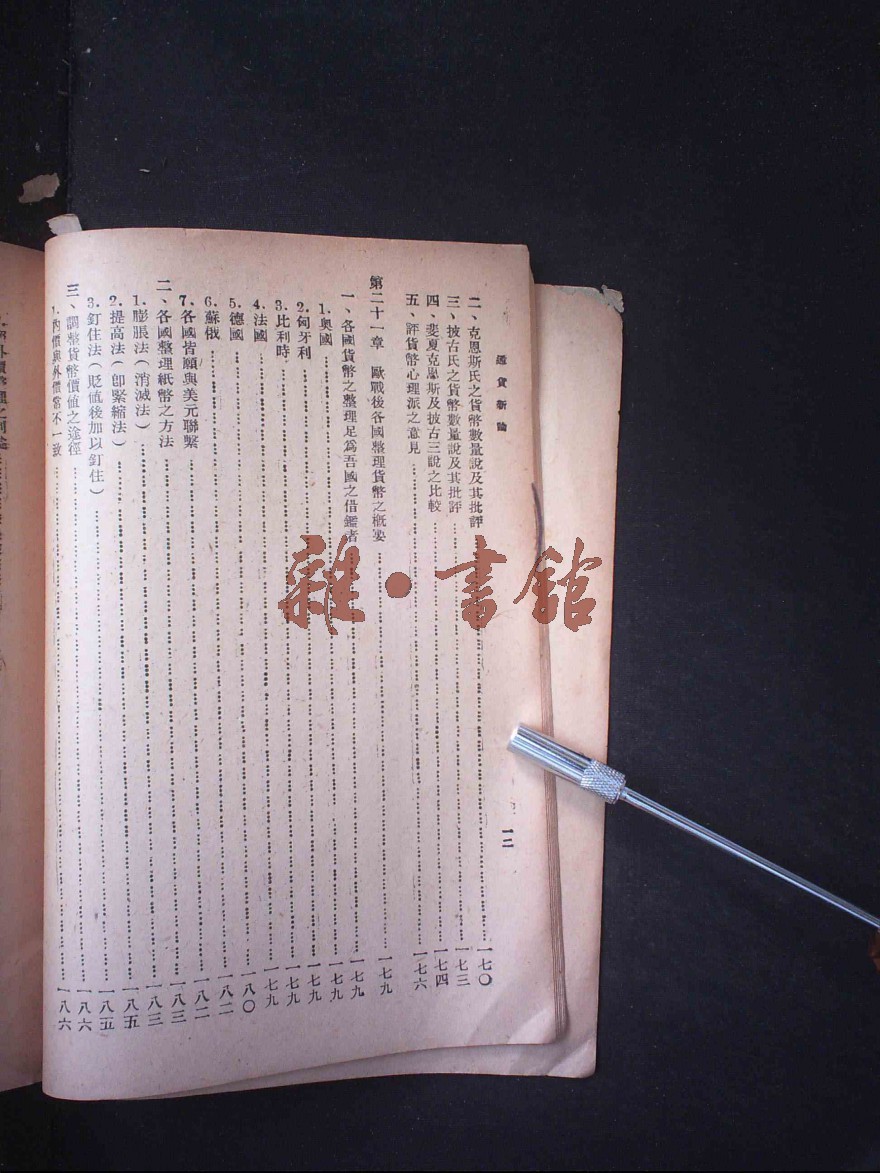 通貨新論
一二
二、克恩斯氏之貨幣數量說及其批評⋯⋯一七〇
三、披古氏之貨幣數量說及其批評⋯⋯一七三
四、斐夏克恩斯及披古三說之比較⋯⋯一七四
五、評貨幣心理派之意見⋯⋯一七六
第二十一章 歐戰後各國整理貨幣之概要⋯⋯一七九
一、各國貨幣之整理足爲吾國之借鑑者⋯⋯一七九
1.奧國⋯⋯一七九
2.匈牙利⋯⋯一七九
3.比利時⋯⋯一七九
4.法國⋯⋯一七九
5.德國⋯⋯一八〇
6.蘇俄⋯⋯一八二
7.各國皆願與美元聯繫⋯⋯一八二
二、各國整理紙幣之方法⋯⋯一八三
1.膨脹法(消滅法)⋯⋯一八三
2.提高法(卽緊縮法)⋯⋯一八五
3.釘住法(貶値後加以釘住)⋯⋯一八五
三、調整貨幣價値之途徑⋯⋯一八六
1.內價與外價常不一致⋯⋯一八六
雜·書館